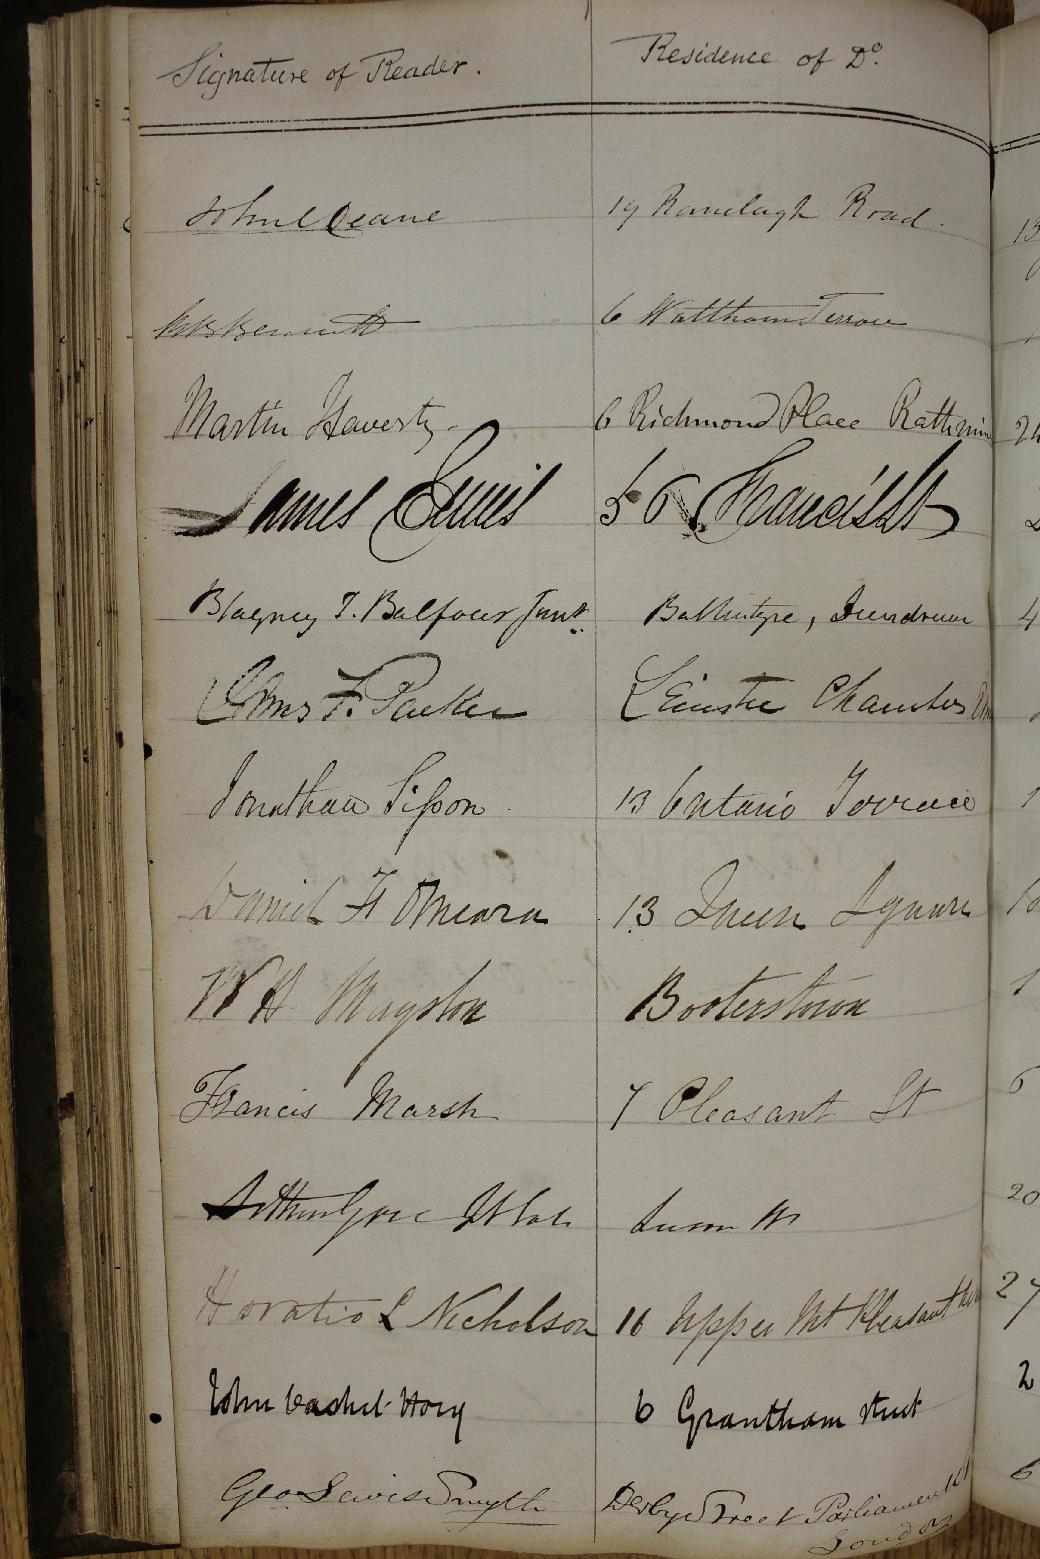 Signature of Reader. Residence of Do.
John C Deane 19 Ranelagh Road.
Bennett 6 Waltham Terrace
Martin Haverty 6 Richmond Place Rathmin
James 56 Francis St
Blayney T. Balfour Junr. Dundrum
F. Leinster Chambers
Jonathan Sisson 13 Ontario Terrace
Daniel H OMeara 13 Queen Square
W H Booterstown
Francis Marsh 7 Pleasant St
Arthur Gore
Horatio L Nicholson 16 Upper Mt Pleasant
John Cashel Hoey 6 Grantham Street
Geo Lewis Smyth Derby Street Parliament St
London